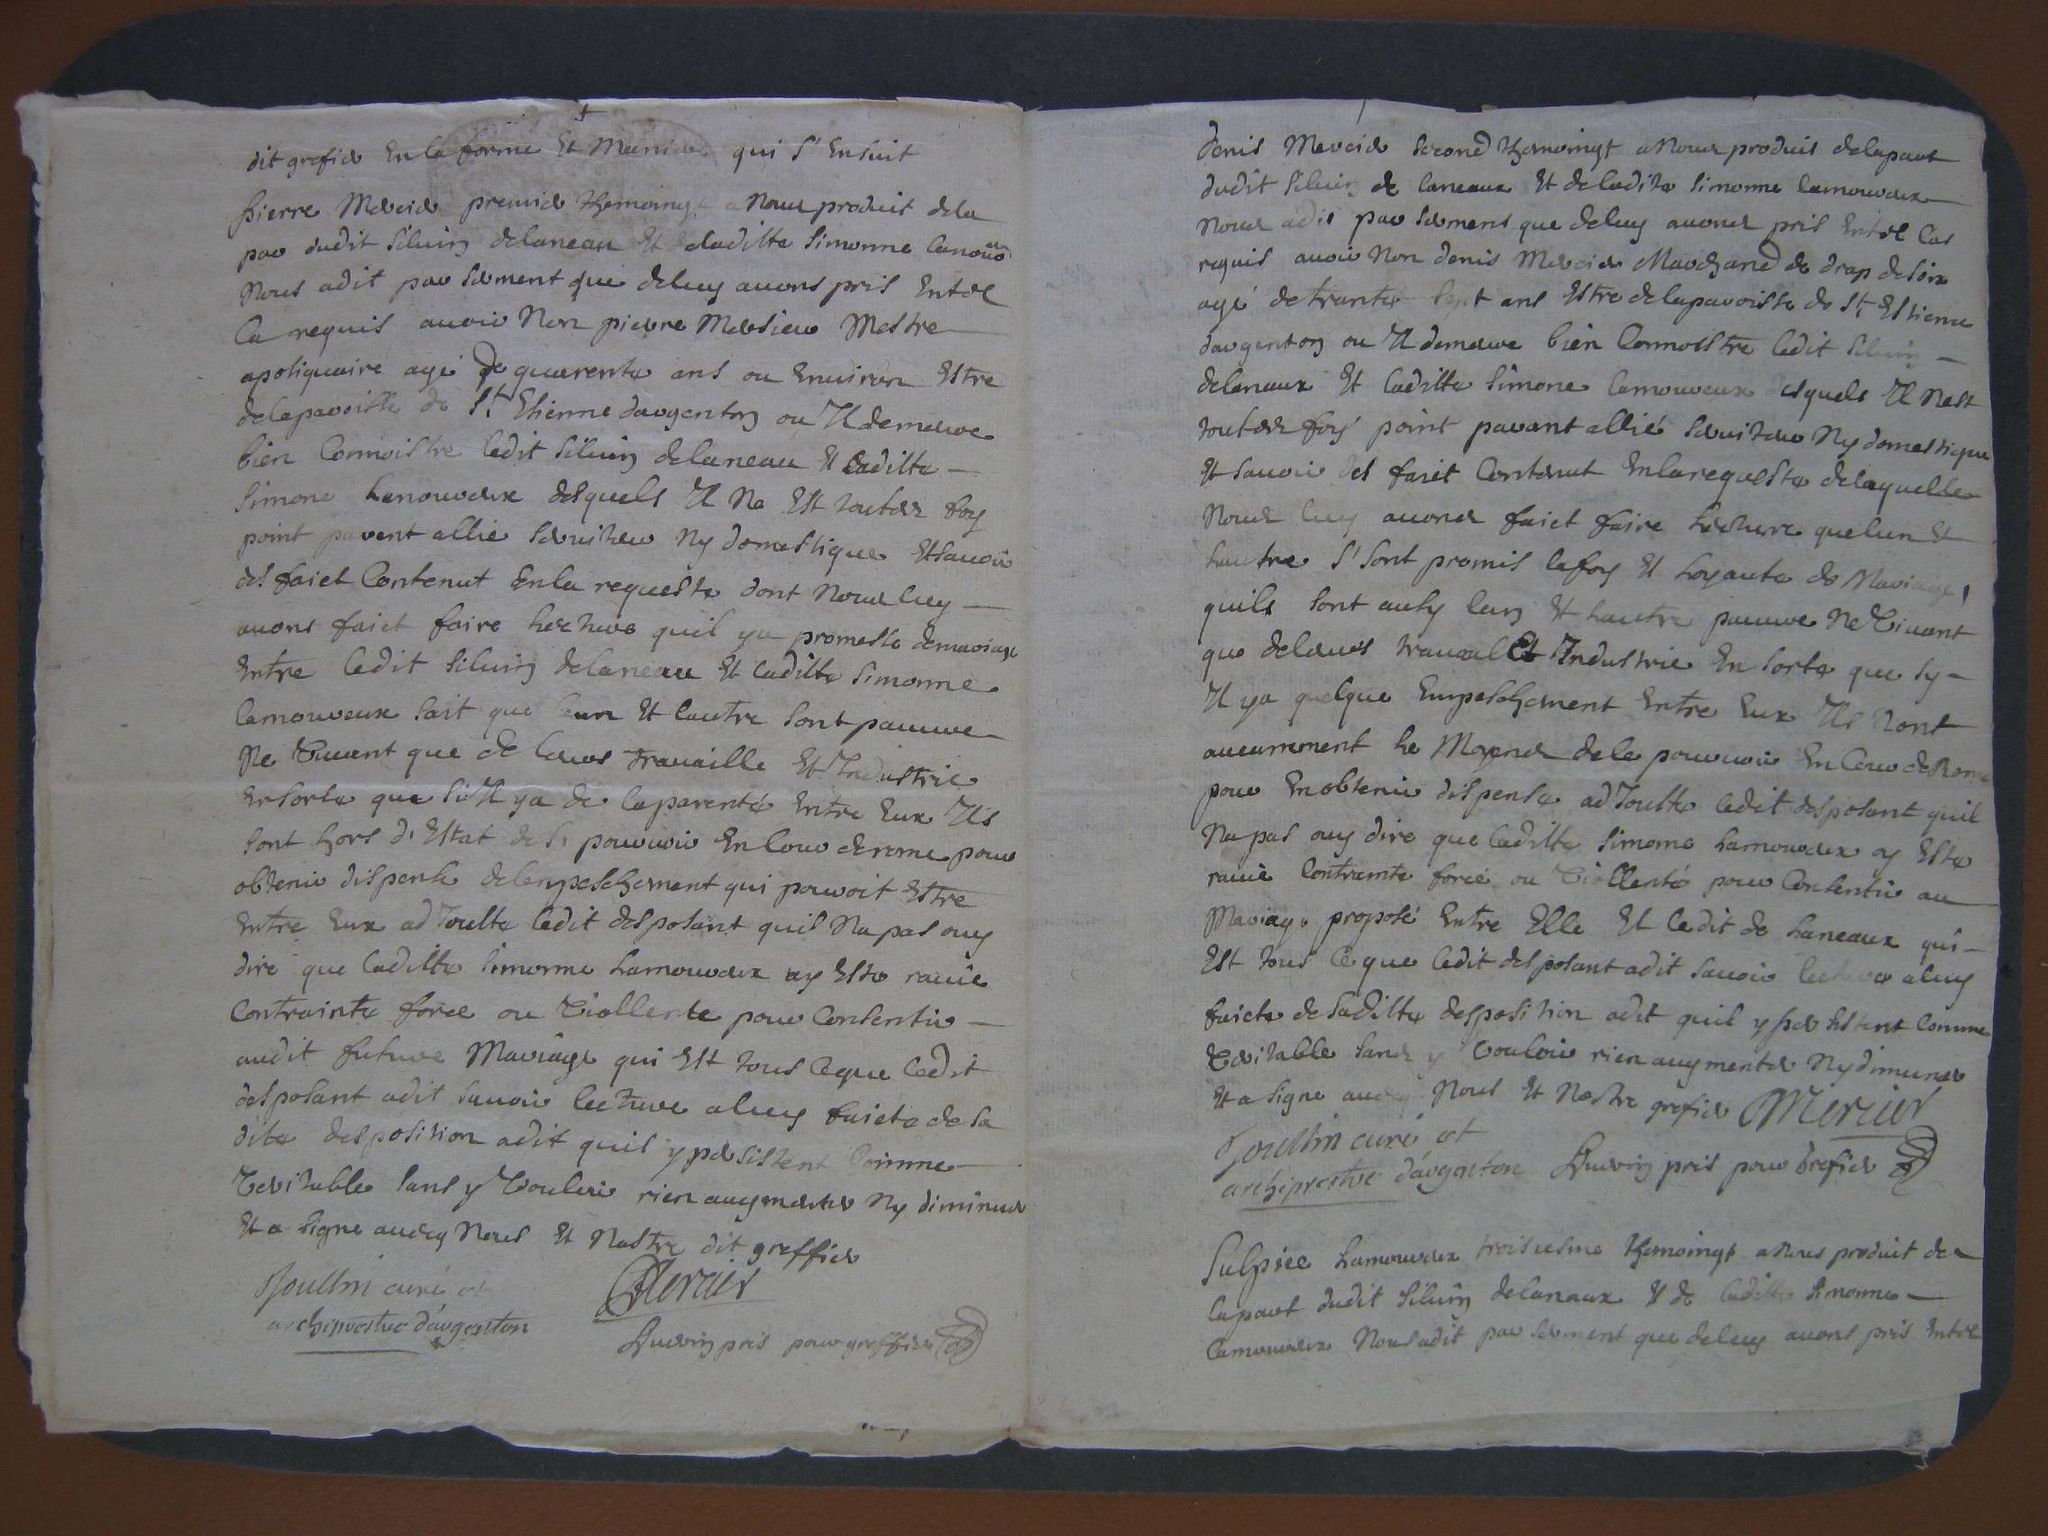 dit grefier En la forme Et Maniere qui S'Ensuit
pierre Mercier premier thémoingt a Nous produit de la
par dudit Siluin delaneau Et de laditte Simonne lamour
Nous a dit par serment que de luy auons pris En tel
Ca requis auoir Non pierre Mersieu Mestre
apotiquaire agé de quarente ans ou Enuiron Estre
de la paroisse de St Etienne dargenton ou Il demeure
bien Connoistre ledit Siluin delaneau Et laditte
Simone Lamoureux desquels Il Ne Est toutes foy
point parent allié seruiteur Ny domestique Et sauoir
des faict Contenut En la requeste dont Nous luy
auons faict faire lecture quil ya promesse de mariage
Entre ledit Siluin delaneau Et laditte Simonne
lamoureux sait que leun Et lautre sont pauure
Ne Viuant que de leurs trauaille Et Industrie
En sorte que si Il ya de la parenté Entre Eux Ils
sont hors d'Estat de se pouruoir En Cour de rome pour
obtenir dispense de lenpeschement qui pouroit Estre
Entre Eux adjoulte ledit desposant quil Na pas ouy
dire que laditte Simonne Lamoureux ay Esté rauie
Contrainte force ou Viollente pour Consentir
audit future Mariage qui Est tous Ce que ledit
desposant a dit sauoir lecture a luy faicte de sa
dite desposition a dit quil y persistent Comme
Veritable sans y Vouloir rien augmenter Ny diminuer
Et a signe auecq Nous Et Nostre dit greffier
Joullin curé et
archiprestre d'argenton
Mercier
pris pour greffier
denis Mercier second thémoingt a Nous produis de la part
dudit Siluin de laneaux Et de ladite Simonne lamoureux
Nous a dis par serment que de luy auons pris En tel Cas
requis auoir Non denis Mercier Marchand de drap de soix
agé de trante sept ans Estre de la paroisse de St Estienne
dargenton ou Il demeure bien Connoistre ledit Siluin
delanaux Et laditte Simone lamoureux desquels Il Nest
toutes foys point parant allié seruiteur Ny domestique
Et sauoir des faict Contenut En la requeste de laquelle
Nous luy auons faict faire lecture que lun Et
lautre S'sont promis la foy Et Loyauté de Mariage
quils sont ausy lun Et lautre pauure Ne Viuant
que de leurs trauail Et Industrie En sorte que sy
Il ya quelque Empeschement Entre Eux Ils Nont
aucunnement Le Moyens de le pouruoir En Cour de Rome
pour En obtenir dispense adjoulte ledit desposant quil
Na pas ouy dire que laditte Simone Lamoureux ay Esté
rauie Contrainte forcé ou Viollenté pour Consentir au
Mariage proposé Entre Elle Et ledit de Laneaux qui
Est tous Ce que ledit desposant a dit sauoir lecture a luy
faicte de sa ditte desposition a dit quil y persistent Comme
Veritable sans y Vouloir rien augmenter Ny dimuner
Et a signe auecq Nous Et Nostre grefier Mercier
Joullin curé et
archiprestre d'argenton pris pour Grefier
Sulpice Lamoureux troisiesme thémoingt a Nous produit de
la part dudit Siluin delanaux Et de laditte Simonne
lamoureux Nous a dit par serment que de luy auons pris En tel